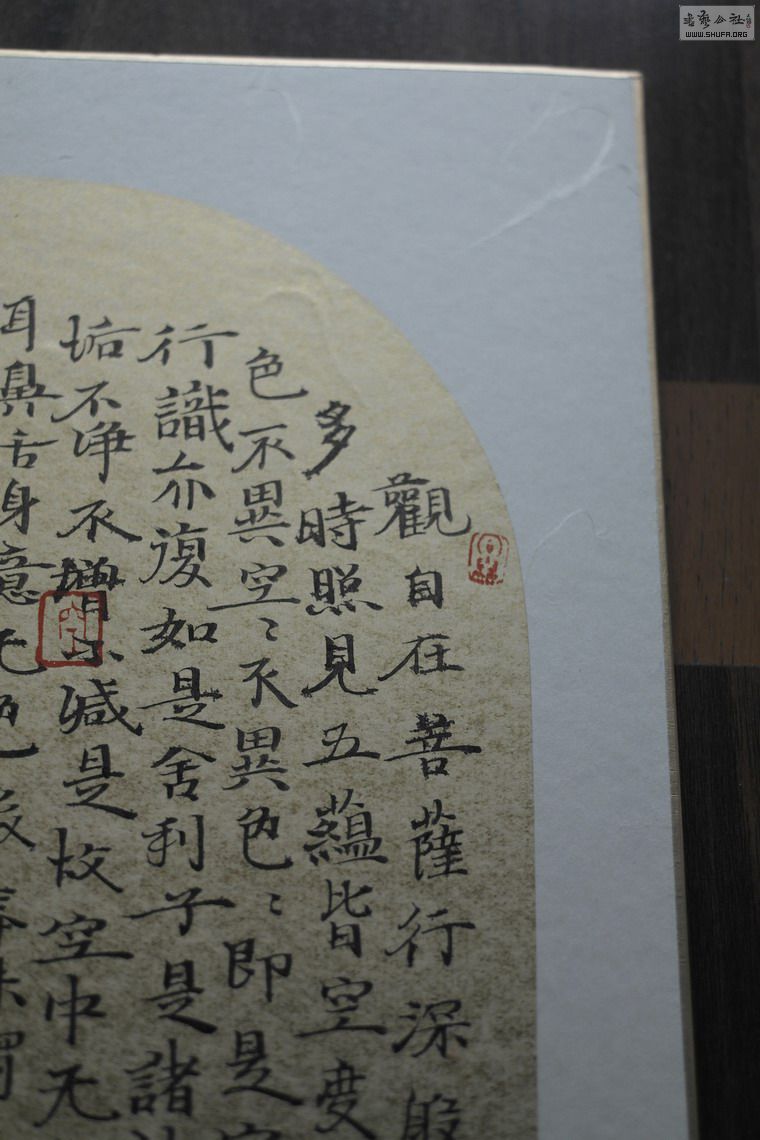 觀自在菩薩行深般
多時照見五蘊皆空度
色不異空〻不異色色〻即是空
行識亦復如是舍利子是諸
垢不净不增不减是故空中无
耳鼻舌身意无色
空
WWW.SHUFA.ORG